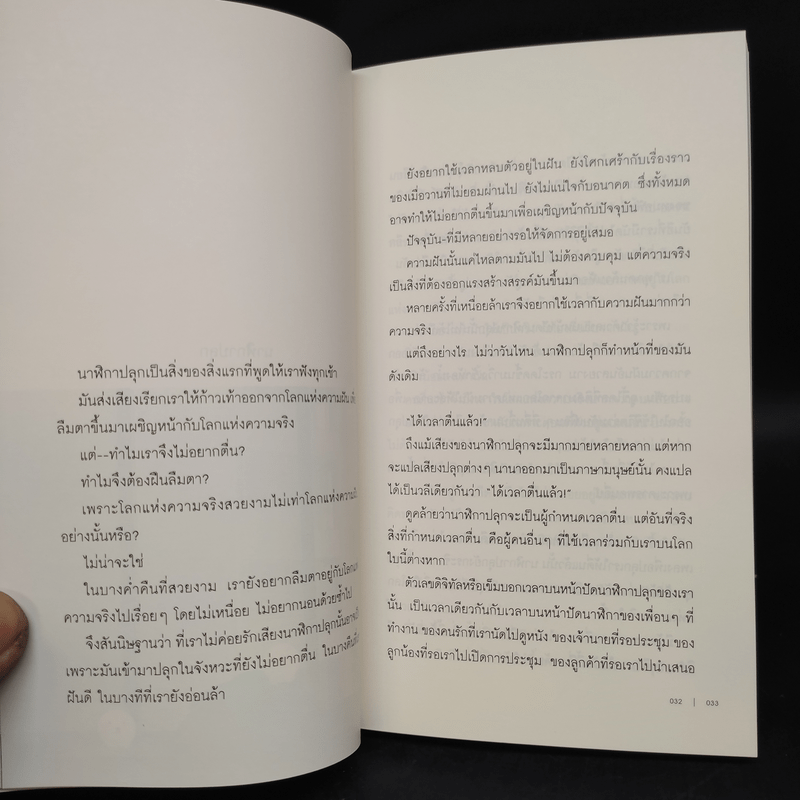 นาฬิกาปลุกเป็นสิ่งของสิ่งแรกที่พูดให้เราฟังทุกเช้า
มันส่งเสียงเรียกเราให้ก้าวเท้าออกจากโลกแห่งความฝัน
ลืมตาขึ้นมาเผชิญหน้ากับโลกแห่งความจริง
แต่--ทำไมเราจึงไม่อยากตื่น?
ทำไมจึงต้องฝืนลืมตา?
เพราะโลกแห่งความจริงสวยงามไม่เท่าโลกแห่งความ
อย่างนั้นหรือ?
ไม่น่าจะใช่
ในบางค่ำคืนที่สวยงาม เรายังอยากลืมตาอยู่กับโลก
ความจริงไปเรื่อยๆ โดยไม่เหนื่อย ไม่อยากนอนด้วยซ้ำไป
จึงสันนิษฐานว่า ที่เราไม่ค่อยรักเสียงนาฬิกาปลุกนั้น
เพราะมันเข้ามาปลุกในจังหวะที่ยังไม่อยากตื่น ในบางคืน
ฝันดี ในบางทีที่เรายังอ่อนล้า
ยังอยากใช้เวลาหลบตัวอยู่ในฝัน ยังโศกเศร้ากับเรื่องราว
ของเมื่อวานที่ไม่ยอมผ่านไป ยังไม่แน่ใจกับอนาคต ซึ่งทั้งหมด
อาจทำให้ไม่อยากตื่นขึ้นมาเพื่อเผชิญหน้ากับปัจจุบัน
ปัจจุบัน-ที่มีหลายอย่างรอให้จัดการอยู่เสมอ
ความฝันนั้นแค่ไหลตามมันไป ไม่ต้องควบคุม แต่ความจริง
เป็นสิ่งที่ต้องออกแรงสร้างสรรค์มันขึ้นมา
หลายครั้งที่เหนื่อยล้าเราจึงอยากใช้เวลากับความฝันมากกว่า
ความจริง
แต่ถึงอย่างไร ไม่ว่าวันไหน นาฬิกาปลุกก็ทำหน้าที่ของมัน
ดังเดิม
"ได้เวลาตื่นแล้ว!"
ถึงแม้เสียงของนาฬิกาปลุกจะมีมากมายหลายหลาก แต่หาก
จะแปลเสียงปลุกต่างๆ นานาออกมาเป็นภาษามนุษย์นั้น คงแปล
ได้เป็นวลีเดียวกันว่า "ได้เวลาตื่นแล้ว!"
ดูคล้ายว่านาฬิกาปลุกจะเป็นผู้กำหนดเวลาตื่น แต่อันที่จริง
สิ่งที่กำหนดเวลาตื่น คือผู้คนอื่นๆ ที่ใช้เวลาร่วมกับเราบนโลก
ใบนี้ต่างหาก
ตัวเลขดิจิทัลหรือเข็มบอกเวลาบนหน้าปัดนาฬิกาปลุกของเรา
นั้น เป็นเวลาเดียวกันกับเวลาบนหน้าปัดนาฬิกาของเพื่อนๆ ที่
ทำงาน ของคนรักที่เรานัดไปดูหนัง ของเจ้านายที่รอประชุม ของ
ลูกน้องที่รอเราไปเปิดการประชุม ของลูกค้าที่รอเราไปนำเสนอ
032 | 033